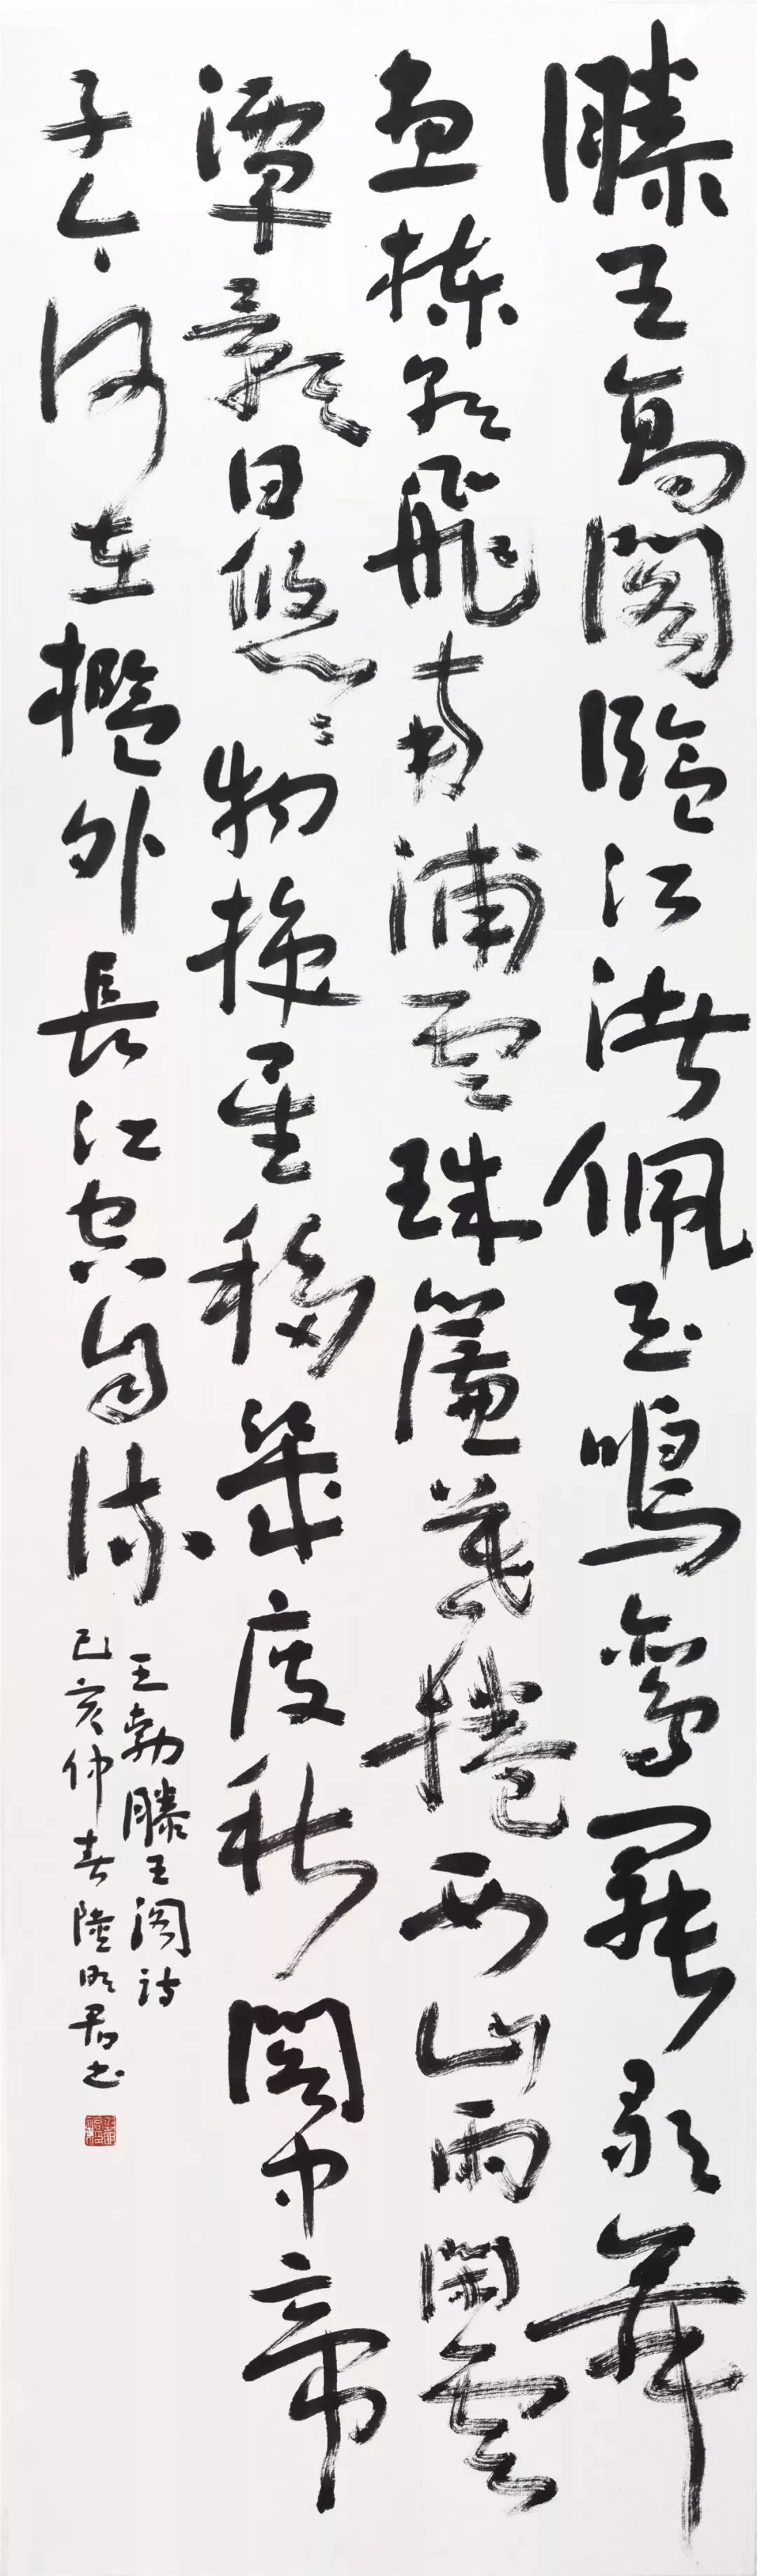 滕王高閣臨江渚佩玉鳴鸞罷歌舞
畫棟朝飛南浦雲珠簾暮捲西山雨閑雲
潭影日悠〻物換星移幾度秋閣中帝
子今何在檻外長江空自流
王勃滕王閣詩
己亥仲春陸明君書